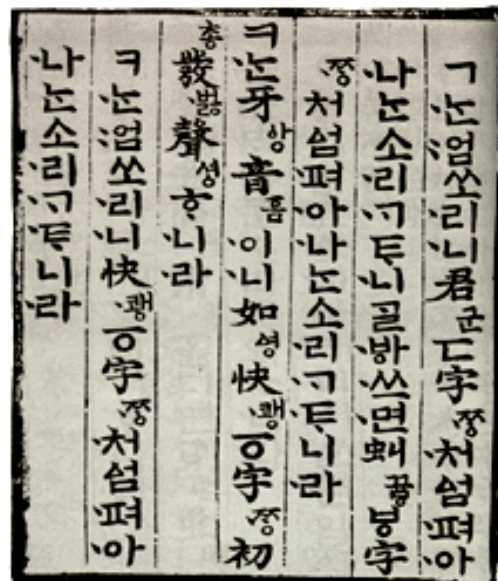 ㄱ·ᄂᆞᆫ:엄쏘·리·니君군ㄷ字·ᄍᆞᆼ·처ᅀᅥᆷ·펴·아
·나·ᄂᆞᆫ소·리·ᄀᆞ·ᄐᆞ·니ᄀᆞᆯ·ᄫᅡ·쓰·면虯뀨ᇢㅸ字
·ᄍᆞᆼ·처ᅀᅥᆷ·펴·아·나·ᄂᆞᆫ소·리·ᄀᆞ·ᄐᆞ·니·라
ㅋ·ᄂᆞᆫ牙앙音ᅙᅳᆷ·이·니如ᅀᅧᆼ快·쾡ㆆ字·ᄍᆞᆼ初
총發·벓聲셩ᄒᆞ·니·라
ㅋ·ᄂᆞᆫ:엄쏘·리·니快·쾡ㆆ字·ᄍᆞᆼ·처ᅀᅥᆷ·펴·아
·나·ᄂᆞᆫ소·리·ᄀᆞ·ᄐᆞ·니·라